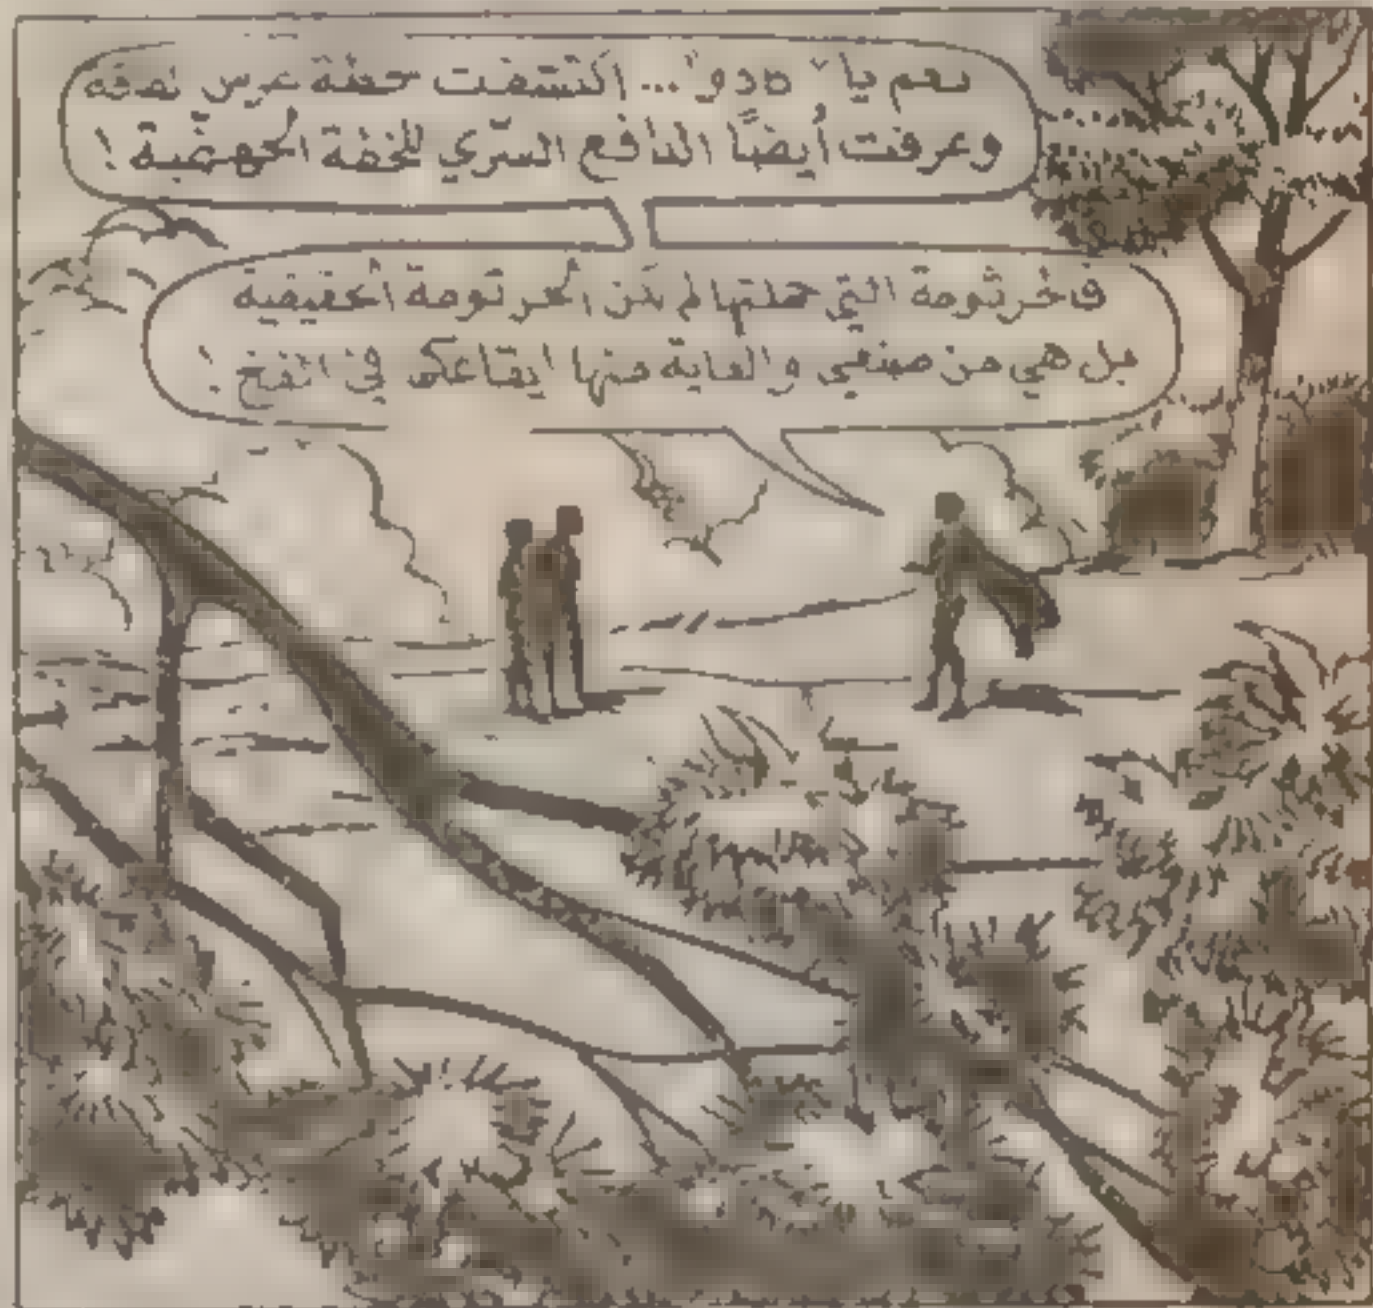 نعم يا "مادو"... اكتشفت خطة غرس
وعرفت أيضًا الدافع السرّي للخفة الجهنّمية !
فالجرثومة التي حملتها لم تكن الجرثومة الحقيقية
بل هي من صنعي والغاية منها ايقاعكم في الفخ !